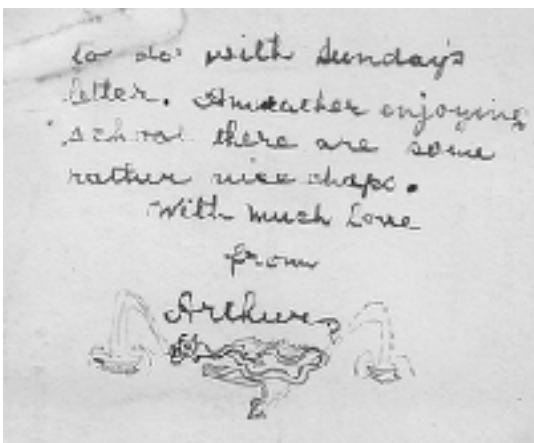 to do with Sunday's
letter. Am rather enjoying
school there are some
rather nice chaps.
With much Love
from
Arthur